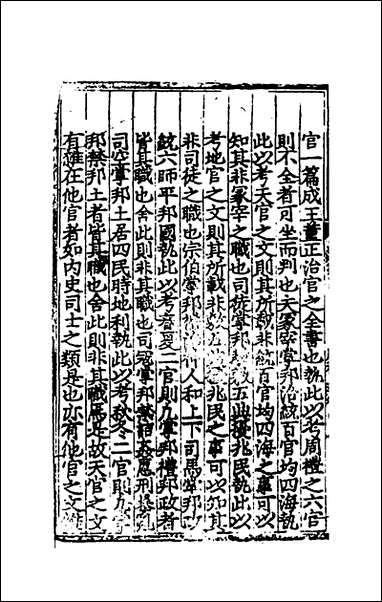 官一篇成王董正治官之全書也執此以考周禮之六官
則不全者可坐而判也夫冢宰掌邦治統百官均四海執
此以考天官之文則其所載非統百官均四海之事可以
知其非冢宰之職也司徒掌邦教敷五典擾兆民執此以
考地官之文則其所載非敷五典擾兆民之事可以知其
非司徒之職也宗伯掌邦人和上下司馬掌邦政
統六師平邦國執此以考春夏二官則凡掌邦禮邦政者
皆其職也舍此則非其職也司寇掌邦禁詰姦慝刑暴亂
司空掌邦土居四民時地利執此以考秋冬二官則凡掌
邦禁邦土者皆其職也舍此則非其職焉是故天官之文
有雜在他官者如内史司士之類是也亦有他官之文雜